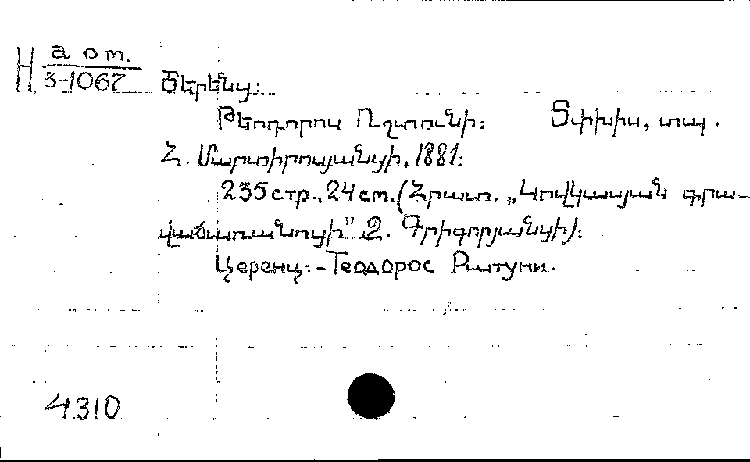 H а от.
3-1067
Ծերենց:
Թեոդորոս Ռշտունի: Տփխիս, տպ.
Հ. Մարտիրոսյանցի, 1881:
235 стр., 24 см. (Հրատ. „Կովկասյան գրա-
վաճառանոցի" Զ. Գրիգորյանցի):
Церенц: - Теодорос Рштуни.
4310